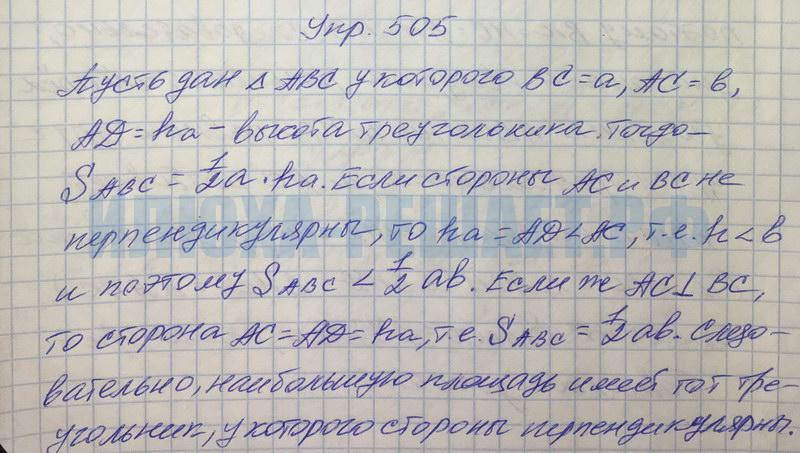 Упр. 505
Пусть дан △ ABC у которого BC = a, AC = в,
AD = ha - высота треугольника. Тогда -
S ABC = 1/2 a · ha. Если стороны AC и BC не
перпендикулярны, то ha = AD < AC, т.е. h < в
и поэтому S ABC < 1/2 ab. Если же AC ⊥ BC,
то сторона AC = AD = ha, т.е. S ABC = 1/2 ab. Следо-
вательно, наибольшую площадь имеет тот тре-
угольник, у которого стороны перпендикулярны.